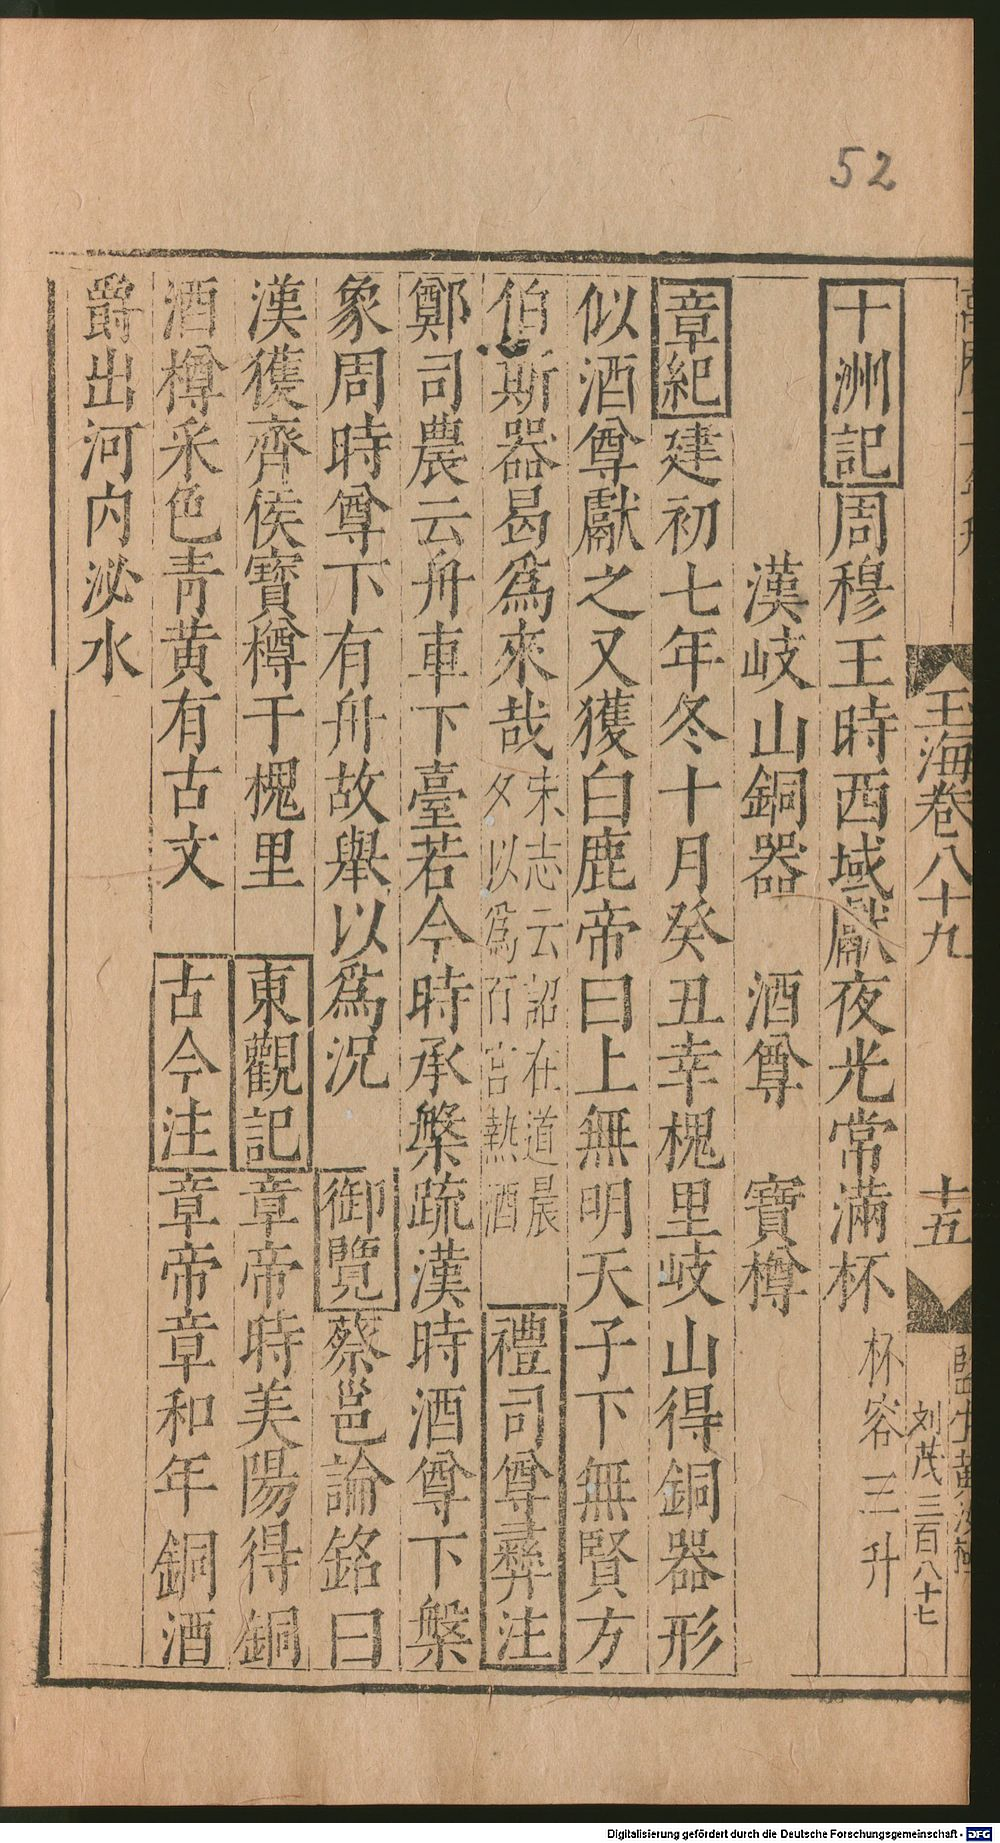 52
玉海卷八十九
十五
刘茂三百八十七
十洲記周穆王時西域獻夜光常滿杯杯容三升
漢岐山銅器 酒尊 寶樽
章紀建初七年冬十月癸丑幸槐里岐山得銅器形
似酒尊獻之又獲白鹿帝曰上無明天子下無賢方
伯斯器曷爲來哉宋志云詔在道晨夕以爲百官熱酒 禮司尊彝注
鄭司農云舟車下臺若今時承槃疏漢時酒尊下槃
象周時尊下有舟故舉以爲況 御覽蔡邕論銘曰
漢獲齊侯寶樽于槐里 東觀記章帝時美陽得銅
酒樽采色青黄有古文 古今注章帝章和年銅酒
爵出河内泌水
Digitalisierung gefördert durch die Deutsche Forschungsgemeinschaft - DFG